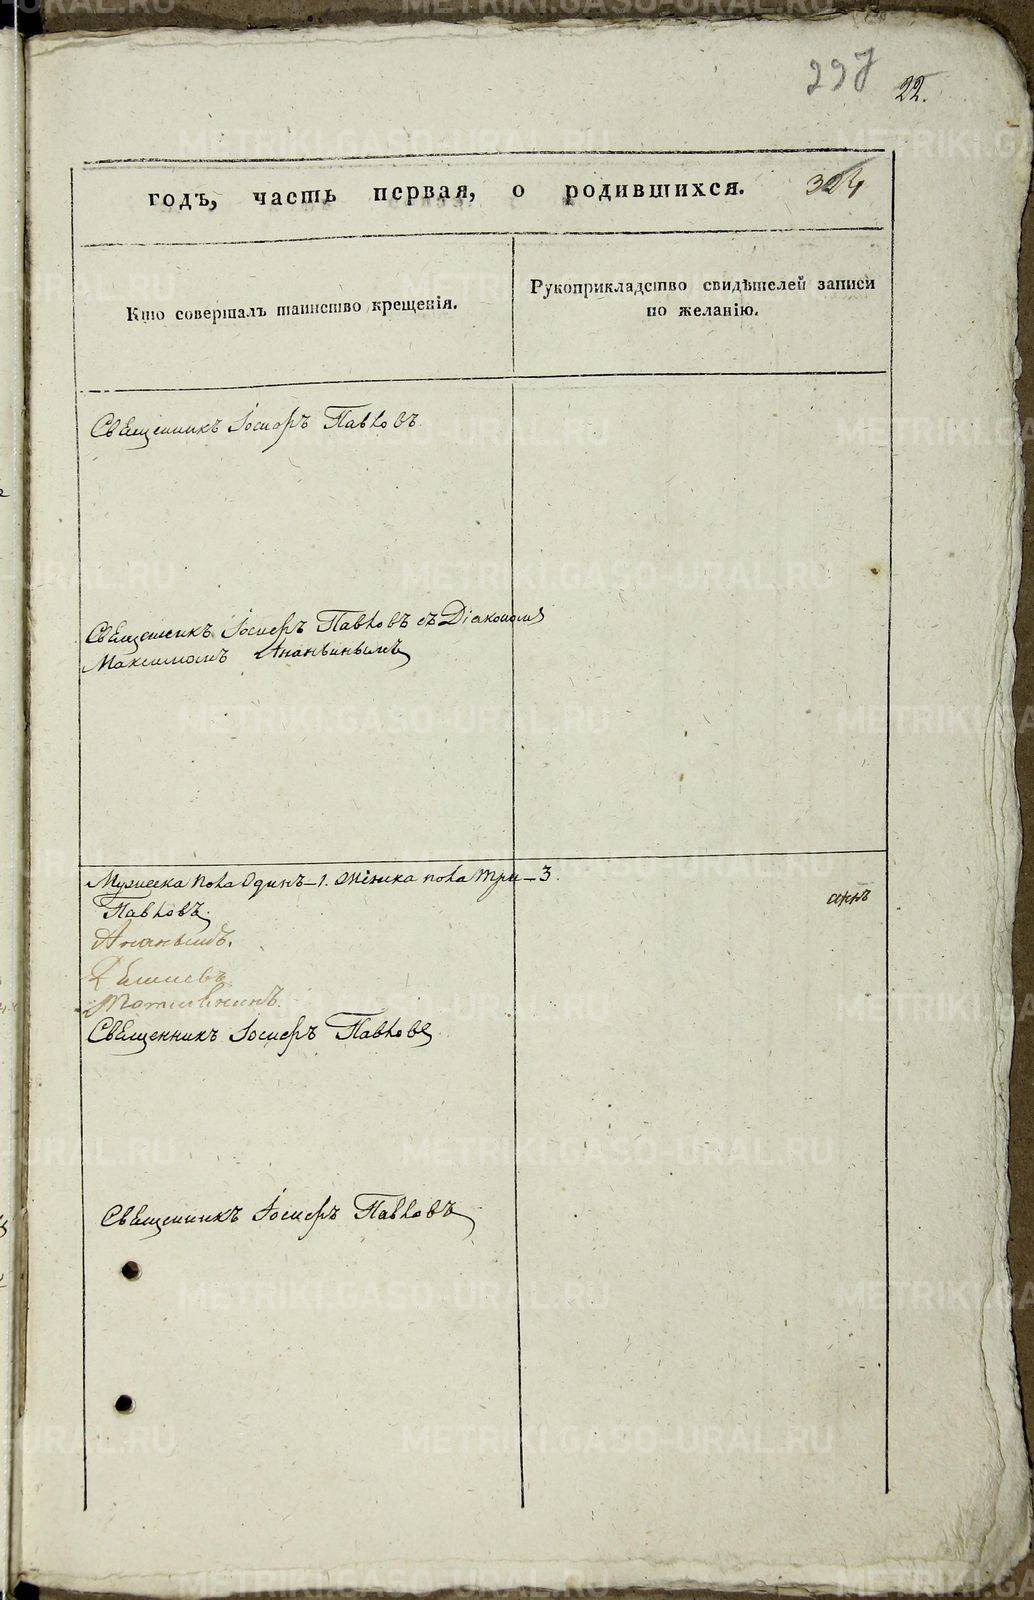 297 22.
годъ, часть первая, о родившихся. 324
Кто совершалъ таинство крещенія.
Рукоприкладство свидѣтелей записи
по желанію.
Священникъ Іосифъ Павловъ
Священникъ Іосифъ Павловъ съ Діакономъ
Максимомъ Ананьинымъ
Мужеска пола Одинъ – 1. Женска пола Три – 3.
Павловъ.
Ананьинъ.
Священникъ Іосифъ Павловъ
Священникъ Іосифъ Павловъ
METRIKI.GASO-URAL.RU